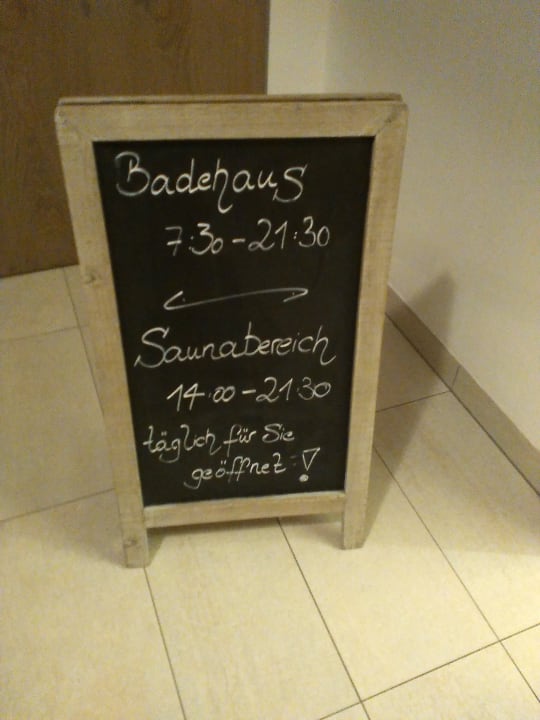 Badehaus
7:30-21:30
Saunabereich
14:00-21:30
täglich für Sie
geöffnet !